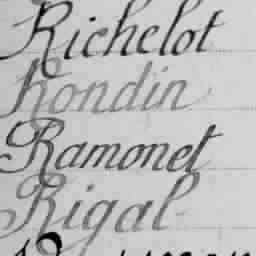 Richelot
Rondin
Ramonet
Rigal